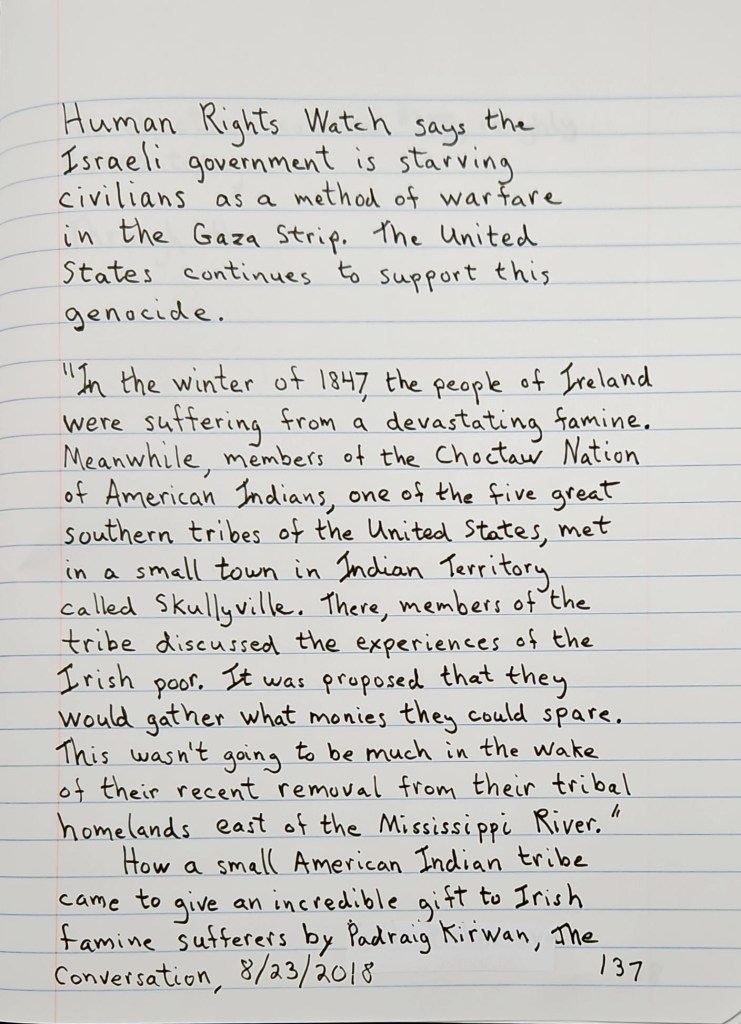 Human Rights Watch says the
Israeli government is starving
civilians as a method of warfare
in the Gaza Strip. The United
States continues to support this
genocide.
"In the winter of 1847, the people of Ireland
were suffering from a devastating famine.
Meanwhile, members of the Choctaw Nation
of American Indians, one of the five great
southern tribes of the United States, met
in a small town in Indian Territory
called Skullyville. There, members of the
tribe discussed the experiences of the
Irish poor. It was proposed that they
would gather what monies they could spare.
This wasn't going to be much in the wake
of their recent removal from their tribal
homelands east of the Mississippi River."
How a small American Indian tribe
came to give an incredible gift to Irish
famine sufferers by Padraig Kirwan, The
Conversation, 8/23/2018 137